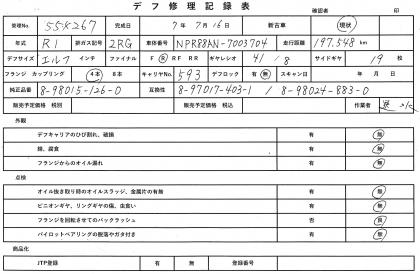 デフ修理記録表
確認者 印
管理No 55X267 完成日 7年 7月 16日 新古車 現状
年式 R1 排ガス記号 2RG 車体番号 NPR88AN-7003704 走行距離 197.548 km
デフサイズ エルフ インチ ファイナル F R RF RR ギヤレシオ 41/8 サイドギヤ 19 枚
フランジ カップリング 4本 8本 キャリヤNo. 593 デフロック 有 無 スキャン日 年 月 日
純正品番 8-98015-126-0 互換性 8-97017-403-1 / 8-98024-883-0
販売予定価格 税別 販売予定価格 税込 作業者
外観
デフキャリアのひび割れ、破損 有 無
錆、腐食 有 無
フランジからのオイル漏れ 有 無
点検
オイル抜き取り時のオイルスラッジ、金属片の有無 有 無
ピニオンギヤ、リングギヤの傷、虫食い 有 無
フランジを回転させてのバックラッシュ 否 良
パイロットベアリングの脱落やガタ付き 有 無
商品化
JTP登録 有 無 登録番号